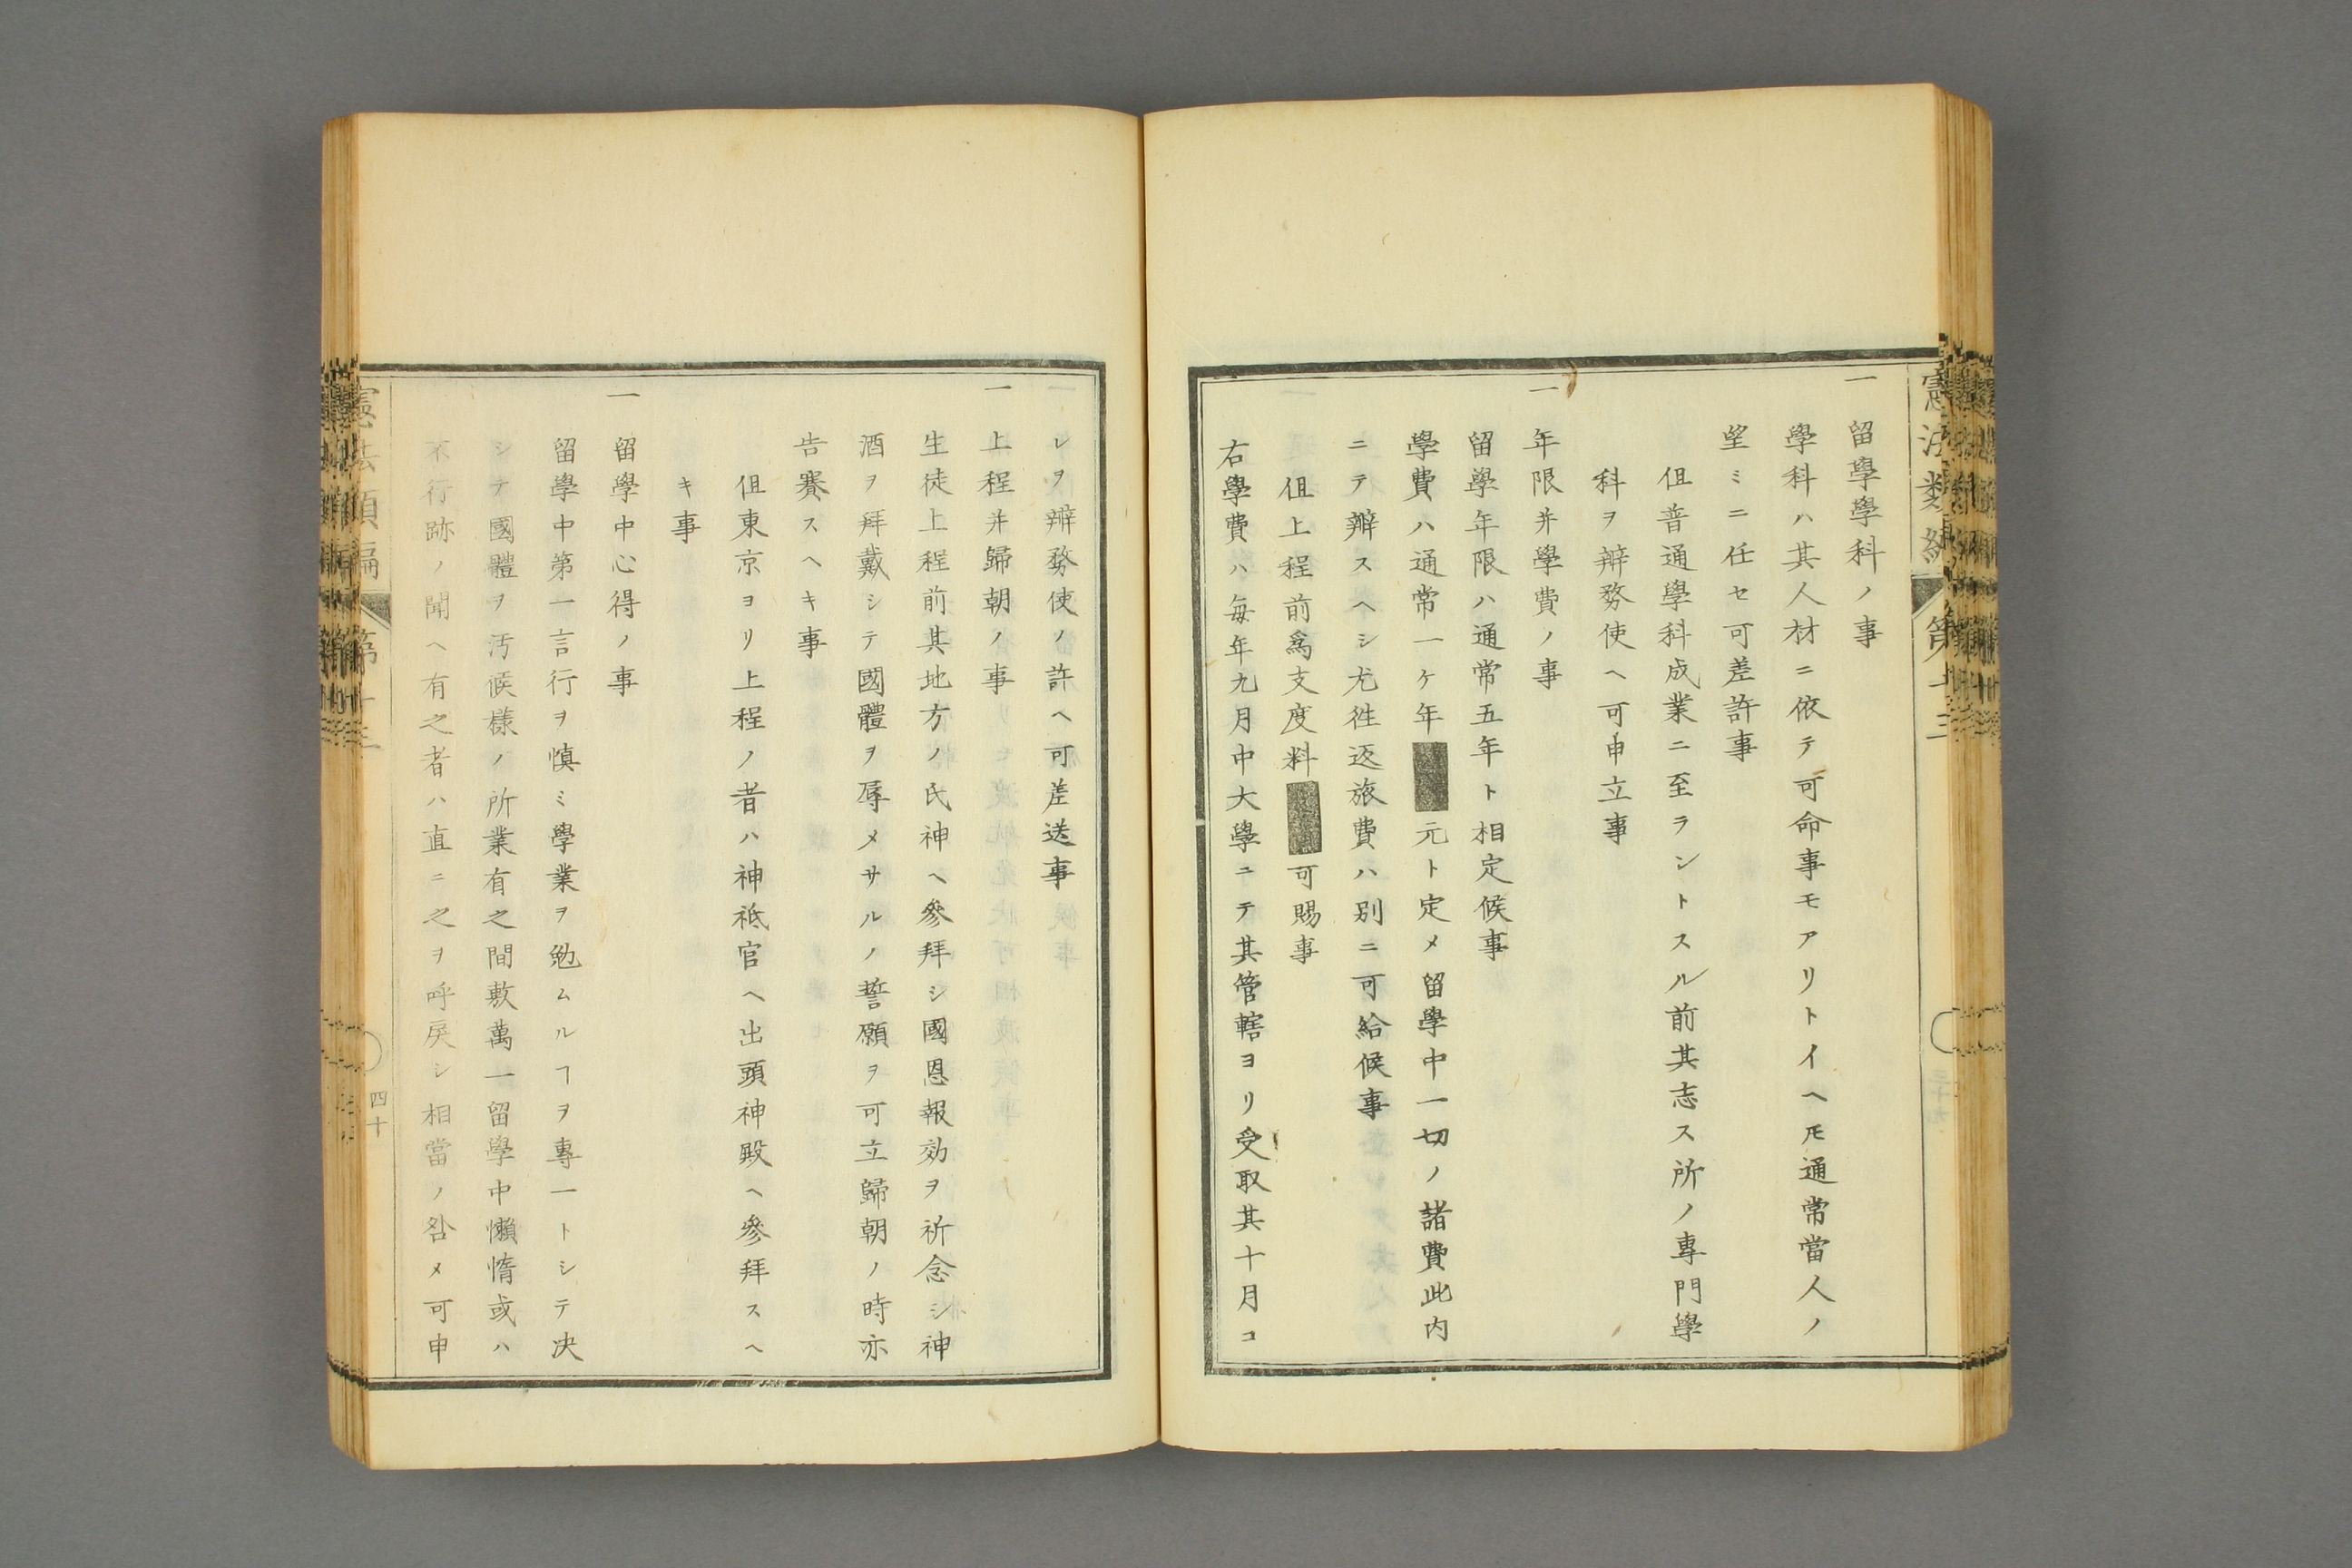 憲法類編 第十三
一 留學學科ノ事
學科ハ其人材ニ依テ可命事モアリトイヘ𪜈通常當人ノ
望ミニ任セ可差許事
但普通學科成業ニ至ラントスル前其志ス所ノ專門學
科ヲ辨務使ヘ可申立事
一 年限并學費ノ事
留學年限ハ通常五年ト相定候事
學費ハ通常一ケ年
元ト定メ留學中一切ノ諸費此内
ニテ辨スヘシ尤徃返旅費ハ別ニ可給候事
但上程前爲支度料
可賜事
右學費ハ每年九月中大學ニテ其管轄ヨリ受取其十月コ
レヲ辨務使ノ許ヘ可差送事
一 上程并歸朝ノ事
生徒上程前其地方ノ氏神ヘ參拜シ國恩報効ヲ祈念シ神
酒ヲ拜戴シテ國體ヲ辱メサルノ誓願ヲ可立歸朝ノ時亦
告賽スヘキ事
但東京ヨリ上程ノ者ハ神祗官ヘ出頭神殿ヘ參拜スヘ
キ事
一 留學中心得ノ事
留學中第一言行ヲ愼ミ學業ヲ勉ムルヿヲ專一トシテ决
シテ國體ヲ汚候樣ノ所業有之間敷萬一留學中懶惰或ハ
不行跡ノ聞ヘ有之者ハ直ニ之ヲ呼戻シ相當ノ咎メ可申
憲法類編 第十三
四十